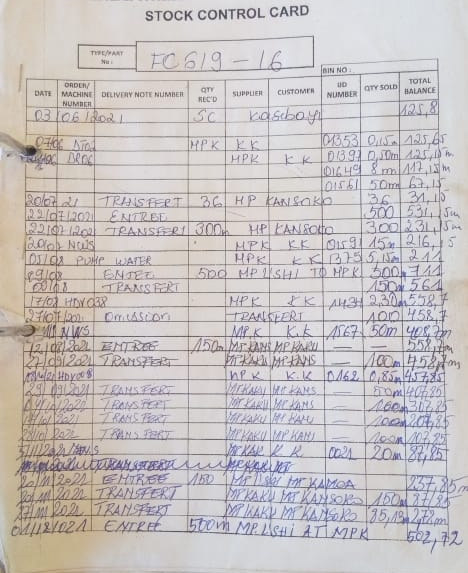 STOCK CONTROL CARD
TYPE/PART No: FC619-16
BIN NO:
DATE ORDER/MACHINE NUMBER DELIVERY NOTE NUMBER QTY REC'D SUPPLIER CUSTOMER UD NUMBER QTY SOLD TOTAL BALANCE
03/06/2021 SC Kasebayi 125,8
07/06 MPK KK 01353 0,15m 125,65
DR06 MPK KK 01391 0,50m 125,15m
01649 8m 117,15m
01561 50m 67,15
20/07 21 TRANSFERT 36 MP KANSOKO 36 31,15
22/07/2021 ENTREE 500 531,15m
22/07/2021 TRANSFERT 300m MP KANSOKO 300 231,15m
20/07 NWS MPK KK 01591 15m 216,15
05/08 PUMP WATER MPK KK 1375 5,15m 211
09/08 ENTEE 500 MP L'SHI TO MPK 500m 711
TRANSFERT 150m 561
17/08 HDN038 MPK KK 2,30m 558,7
27/07/2021 Omission TRANSFERT 100 458,7
NWS MPK KK 1567 50m 408,7m
ENTREE 150m MP KANS MP KAKU — 558,7m
TRANSFERT MP KAKU MP KANS — 100m 458,7m
MPK KK 0162 0,85m 457,85
TRANSFERT MP KAKU MP KANS — 50m 407,85
TRANSFERT MP KAKU MP KANS — 100m 307,85
TRANSFERT MP KAKU MP KANS — 100m 207,85
TRANSFERT MP KAKU MP KANS — 100m 107,85
MP KAK KK 0021 20m 87,85
20/11/2021 ENTREE 150 MP KAMOA 237,85m
TRANSFERT MP KAKU MP KANSOKO 150m 87,85
TRANSFERT MP KAKU MP KANSOKO 85,13m 2,72m
01/12/021 ENTREE 500m MP L'SHI AT MPK 502,72